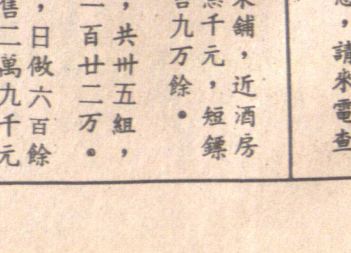 ，請來電查
舖，近酒房
千元，短鏢
九万餘。
，共卅五組，
一百廿二万。
，日做六百餘
售二萬九千元